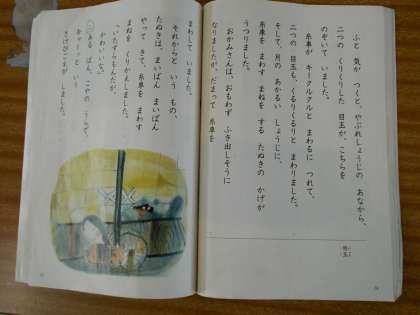 ふと 気が つくと、やぶれしょうじの あなから、
二つの くりくりした 目玉が、こちらを
のぞいて いました。
糸車が キークルクルと まわるに つれて、
二つの 目玉も、くるりくるりと まわりました。
そして、月の あかるい しょうじに、
糸車を まわす まねを する たぬきの かげが
うつりました。
おかみさんは、おもわず ふき出しそうに
なりましたが、だまって 糸車を
まわして いました。
それからと いう もの、
たぬきは、まいばん まいばん
やって きて、糸車を まわす
まねを くりかえしました。
「いたずらもんだが、
かわいいな。」
ある ばん、こやの うらで、
キャーッと いう
さけびごえが しました。
目玉